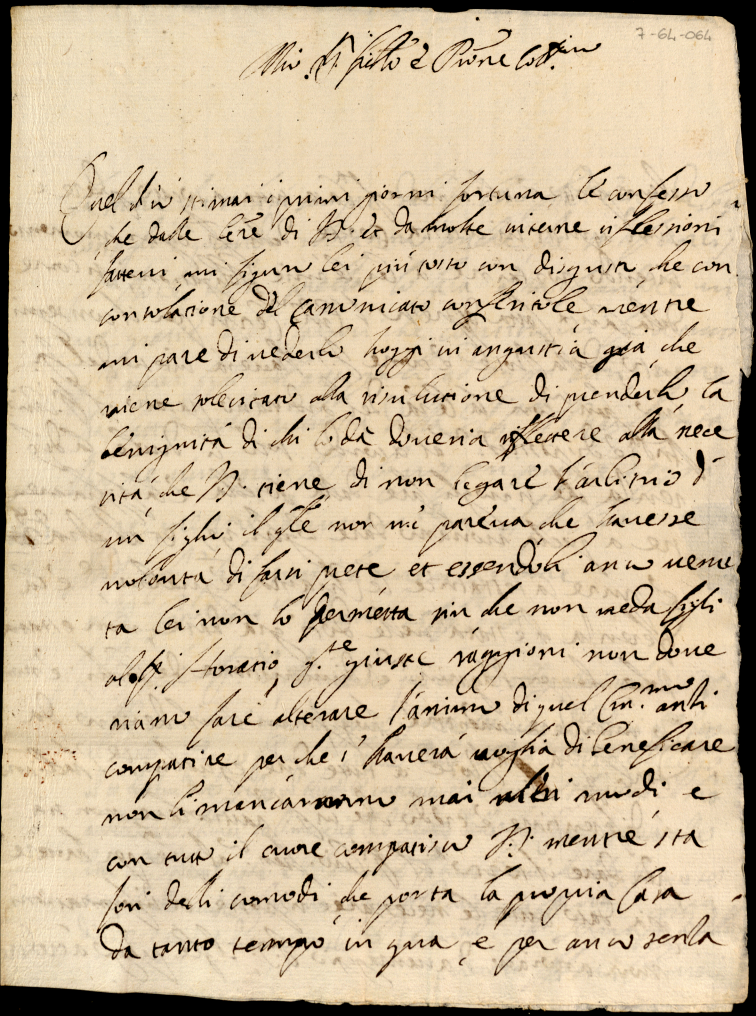 7-64-064
Mio Sig.r fr̃llo e Prõne Col.mo
Quel ch'io stimai i primi giorni fortuna le confesso
che dalle lĕre di V.S. et da molte interne riflessioni
fattevi mi figuro lei più tosto con disgusto che con
consolatione del Canonicato conferitole mentre
mi pare di vederla hoggi in angustia già che
viene solecitato alla risolutione di prenderlo la
benignità di chi lo dà doveria riflettere alla nece
sità che V.S. tiene di non legare l'arbitrio d'
un figlio il q̃le non mi pareva che havesse
volontà di farsi prete et essendoli anco venu
ta lei non lo permetta sin che non veda figli
al Sig.r Horatio, q.te giuste raggioni non dove
riano fare alterare l'animo di quel Em.mo anzi
compatire perche s'haverà voglia di beneficare
non li mancaranno mai altri modi, e
con tutto il cuore compatisco V.S. mentre sta
fori delli comodi che porta la propria Casa
da tanto tempo in qua, e per anco senza